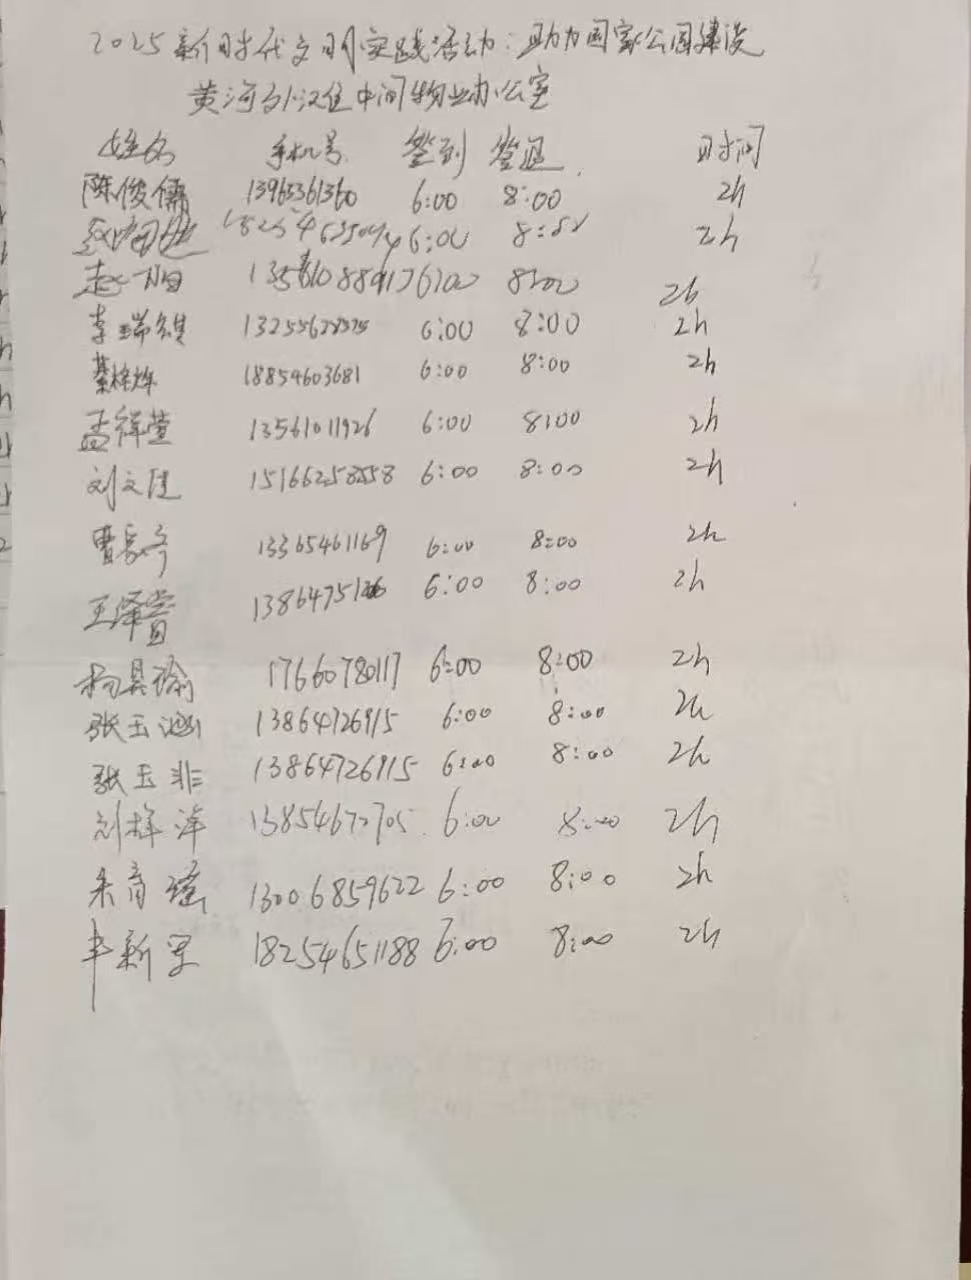 2025新时代文明实践活动:助力国家公园建设
黄河 中间物业办公室
姓名 手机号 签到 签退 时间
陈俊儒 13963361360 6:00 8:00 2h
6:00 2h
赵 13561088917 6:00 8:00 2h
李瑞 6:00 8:00 2h
綦梓烨 18854603681 6:00 8:00 2h
孟祥萱 13561011926 6:00 8:00 2h
刘文佳 15166258558 6:00 8:00 2h
曹 13365461169 6:00 8:00 2h
王泽 6:00 8:00 2h
杨昊瑜 17660780117 6:00 8:00 2h
张玉涵 13864726915 6:00 8:00 2h
张玉非 13864726915 6:00 8:00 2h
刘梓洋 13854672705 6:00 8:00 2h
朱育瑶 13006859622 6:00 8:00 2h
新军 18254651188 6:00 8:00 2h